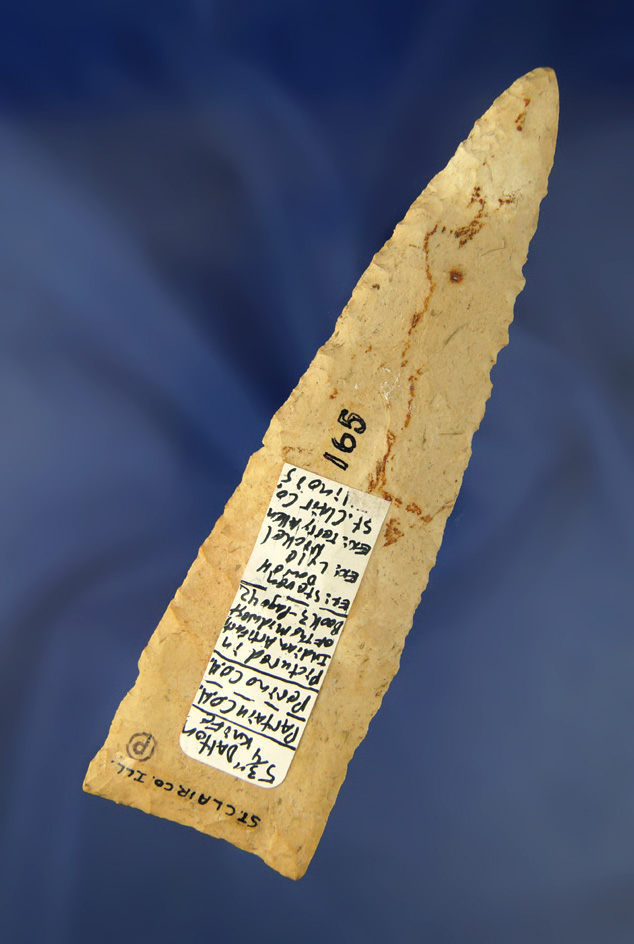 165
5 3/4" Dalton
Knife
Partain Coll.
Perino Coll.
Pictured in
Indian Artifacts
of the Midwest
Book 3 - Page 42
Ex: Steven
Ex: Lyle
Nickel
Ex: Terry Allen
St. Clair Co
Illinois
P
ST. CLAIR CO. ILL.